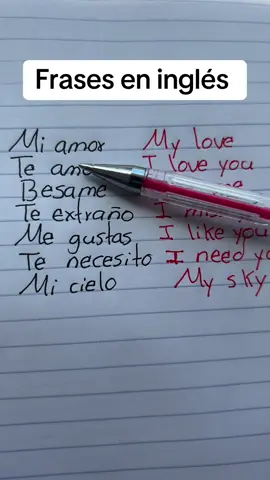 Frases en inglés
Mi amor My love
Te I love you
Besame
Te extraño you
Me gustas I like you
Te necesito I need you
Mi cielo My sky